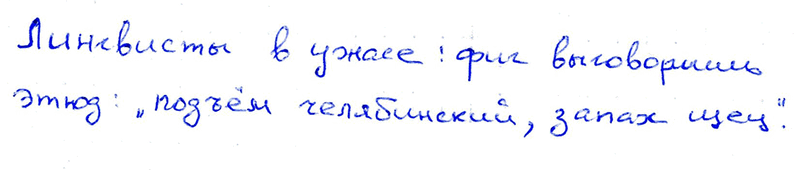 Лингвисты в ужасе: фиг выговоришь
этюд: „подъём челябинский, запах щец“.